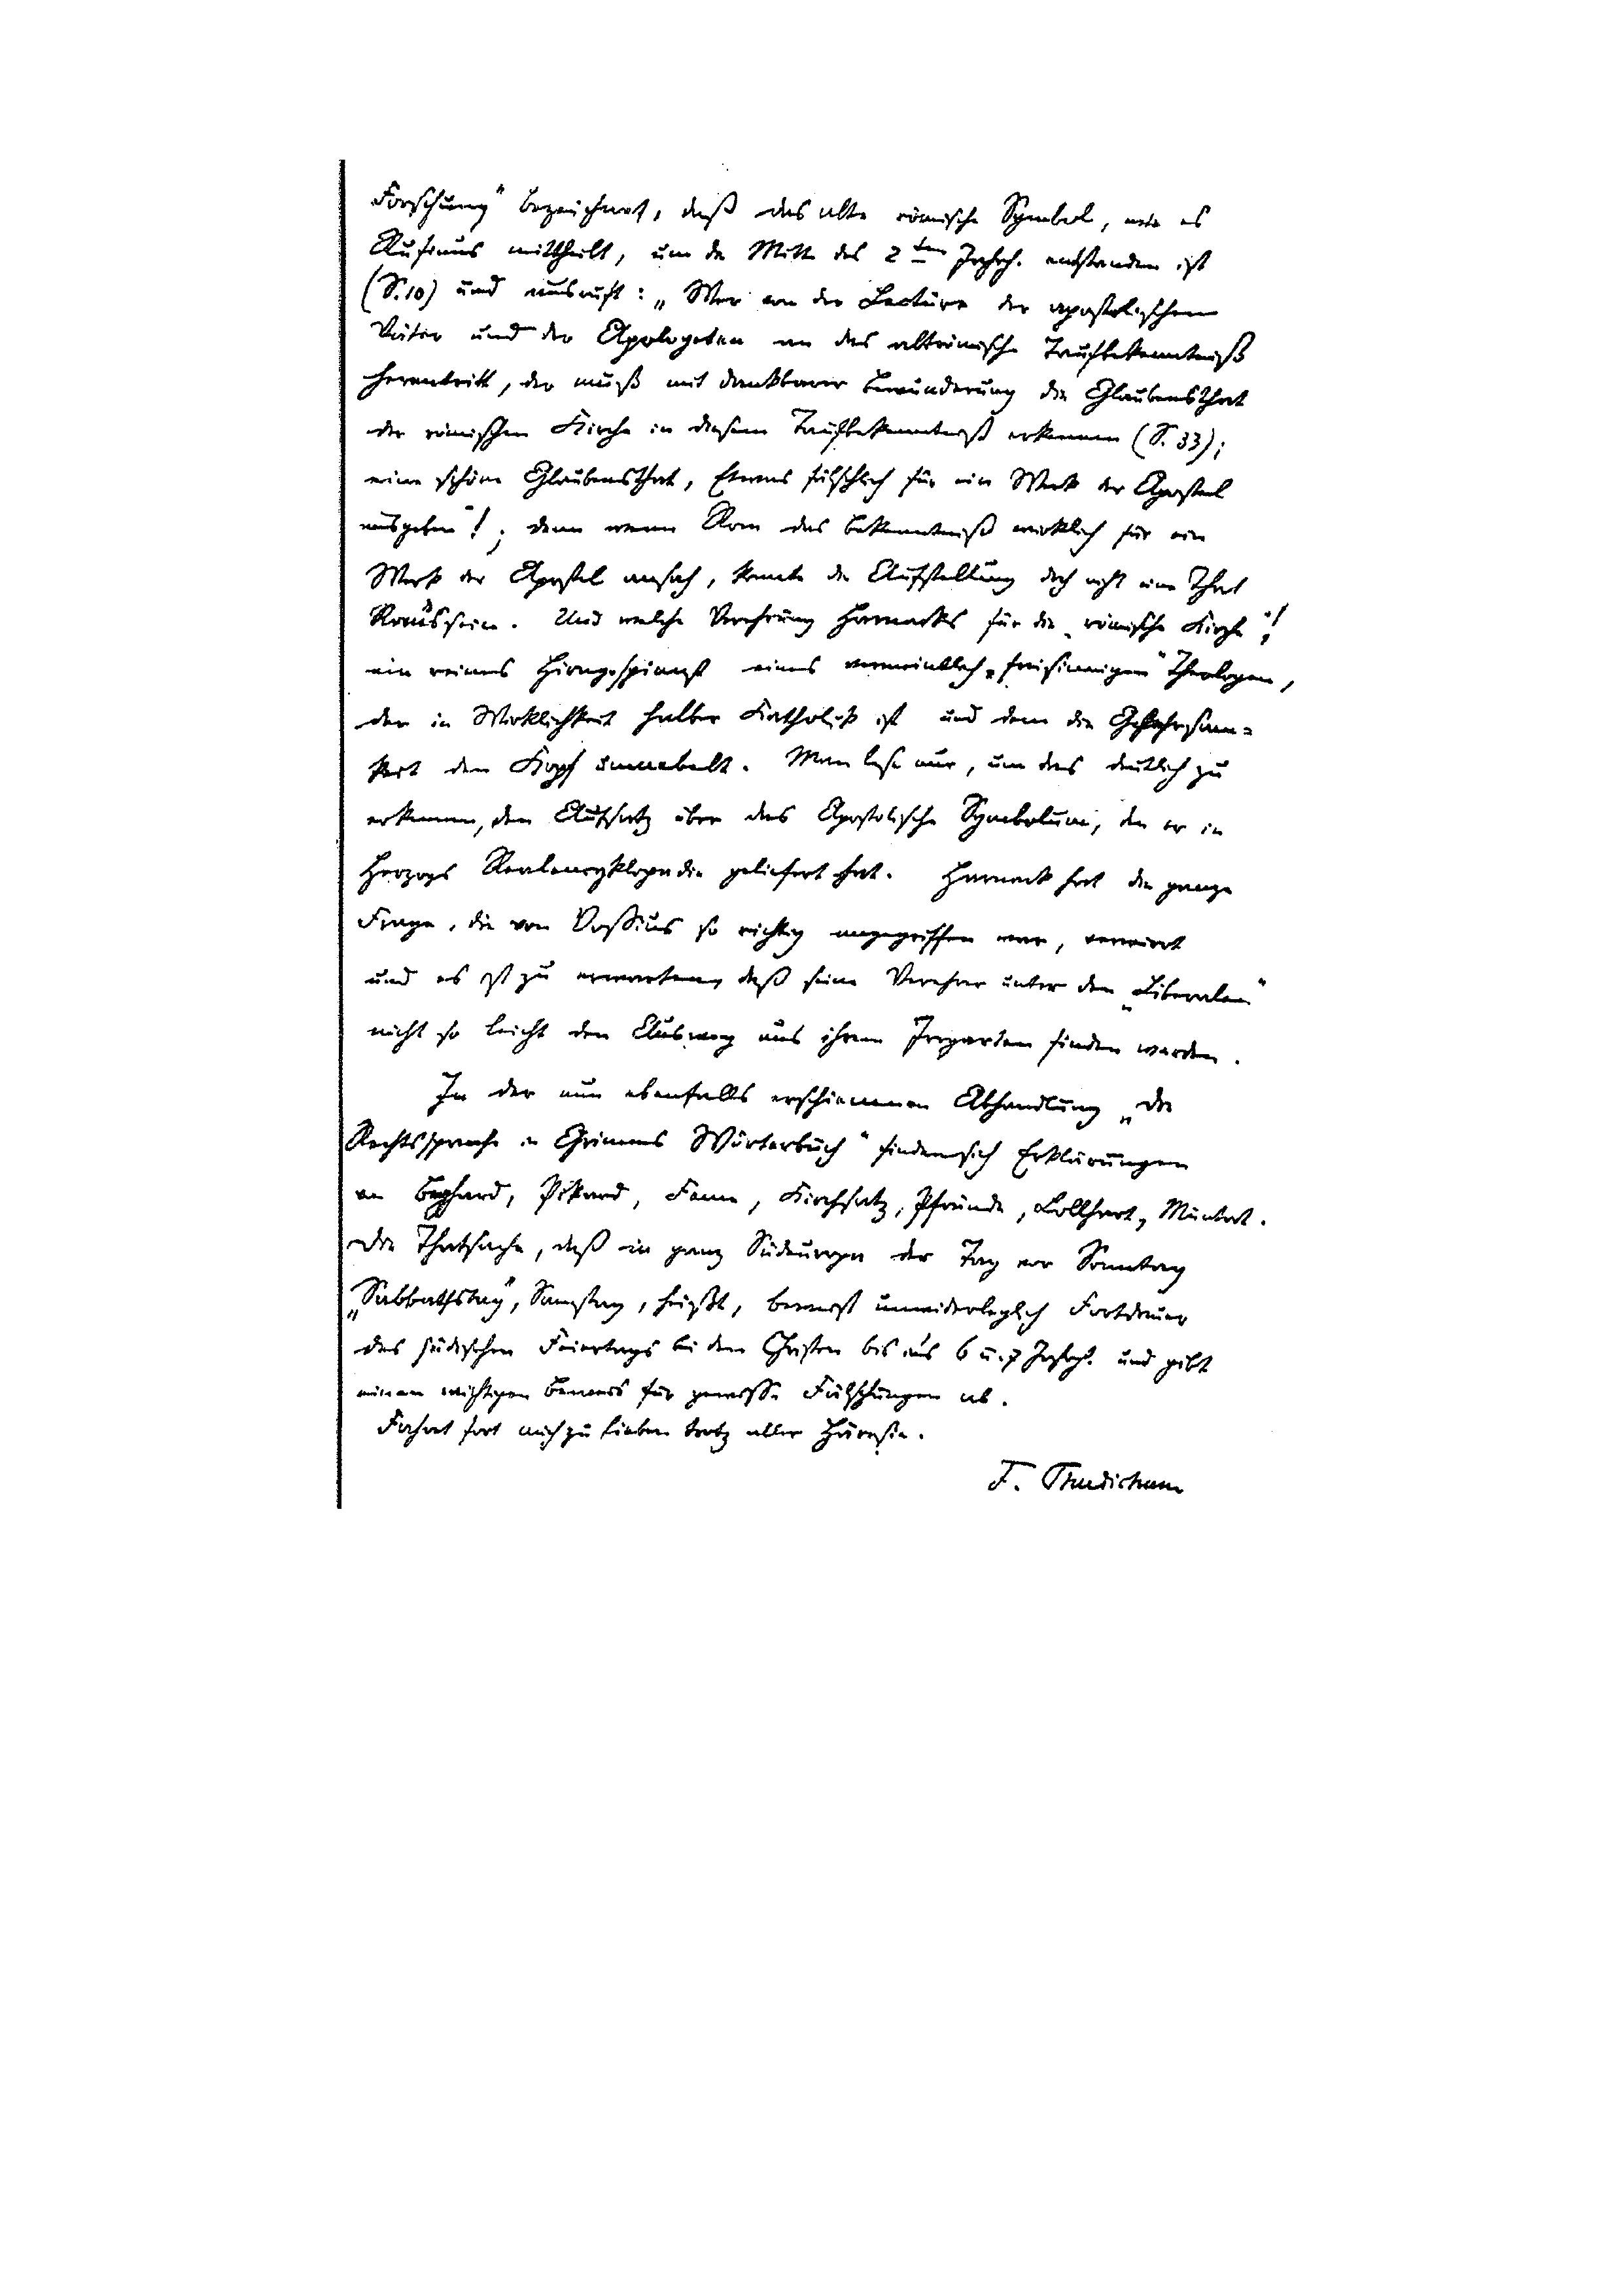 Forschung" bezeichnet, daß das alte römische Symbol, wie es
Rufinus mittheilt, um die Mitte des 2ten Jahrh. entstanden ist
(S. 10) und ausruft: „Wer von der Lectüre der apostolischen
Väter und der Apologeten an das altrömische Taufbekenntniß
herantritt, der muß mit dankbarer Bewunderung die Glaubensthat
der römischen Kirche in diesem Taufbekenntniß erkennen (S. 33);
eine schöne Glaubensthat, Etwas fälschlich für ein Werk der Apostel
ausgeben"!; denn wenn Rom das Bekenntniß wirklich für ein
Werk der Apostel ansah, konnte die Aufstellung doch nicht eine That
Roms sein. Und welche Verehrung Harnacks für die „römische Kirche"!
ein reines Hirngespinst eines vermeintlich „freisinnigen" Theologen,
der in Wirklichkeit halber Katholik ist und dem die Gelehrsam=
keit den Kopf umnebelt. Man lese nur, um das deutlich zu
erkennen, den Aufsatz über das Apostolische Symbolum, den er in
Herzogs Realencyklopädie geliefert hat. Harnack hat die ganze
Frage, die von Vossius so richtig angegriffen war, verwirrt
und es ist zu erwarten, daß seine Verehrer unter den „Liberalen"
nicht so leicht den Ausweg aus ihrem Irrgarten finden werden.
In der nun ebenfalls erschienenen Abhandlung „Die
Rechtssprache in Grimms Wörterbuch" finden sich Erklärungen
von Beghard, Pikard, Feme, Kirchsatz, Pfründe, Lollhart, Muntat.
Die Thatsache, daß in ganz Südeuropa der Tag vor Sonntag
„Sabbathstag", Samstag, heißt, beweist unwiderleglich Fortdauer
des jüdischen Feiertags bei den Christen bis ins 6 u. 7 Jahrh. und gibt
einen wichtigen Beweis für gewisse Fälschungen ab.
Fahret fort mich zu lieben trotz aller Häresie.
F. Thudichum